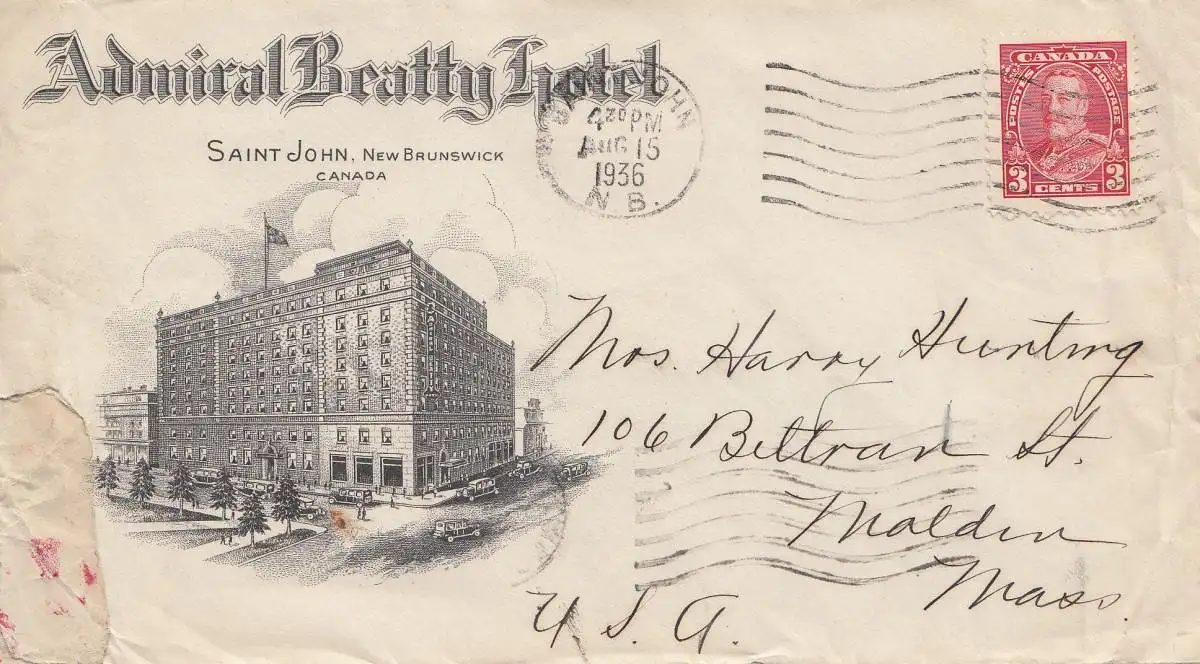 Admiral Beatty Hotel
SAINT JOHN, NEW BRUNSWICK
CANADA
SAINT JOHN
4 30 PM
AUG 15
1936
N B.
CANADA
POSTES
POSTAGE
3 CENTS 3
Mrs. Harry Hunting
106 Beltran St.
Malden
Mass.
U. S. A.